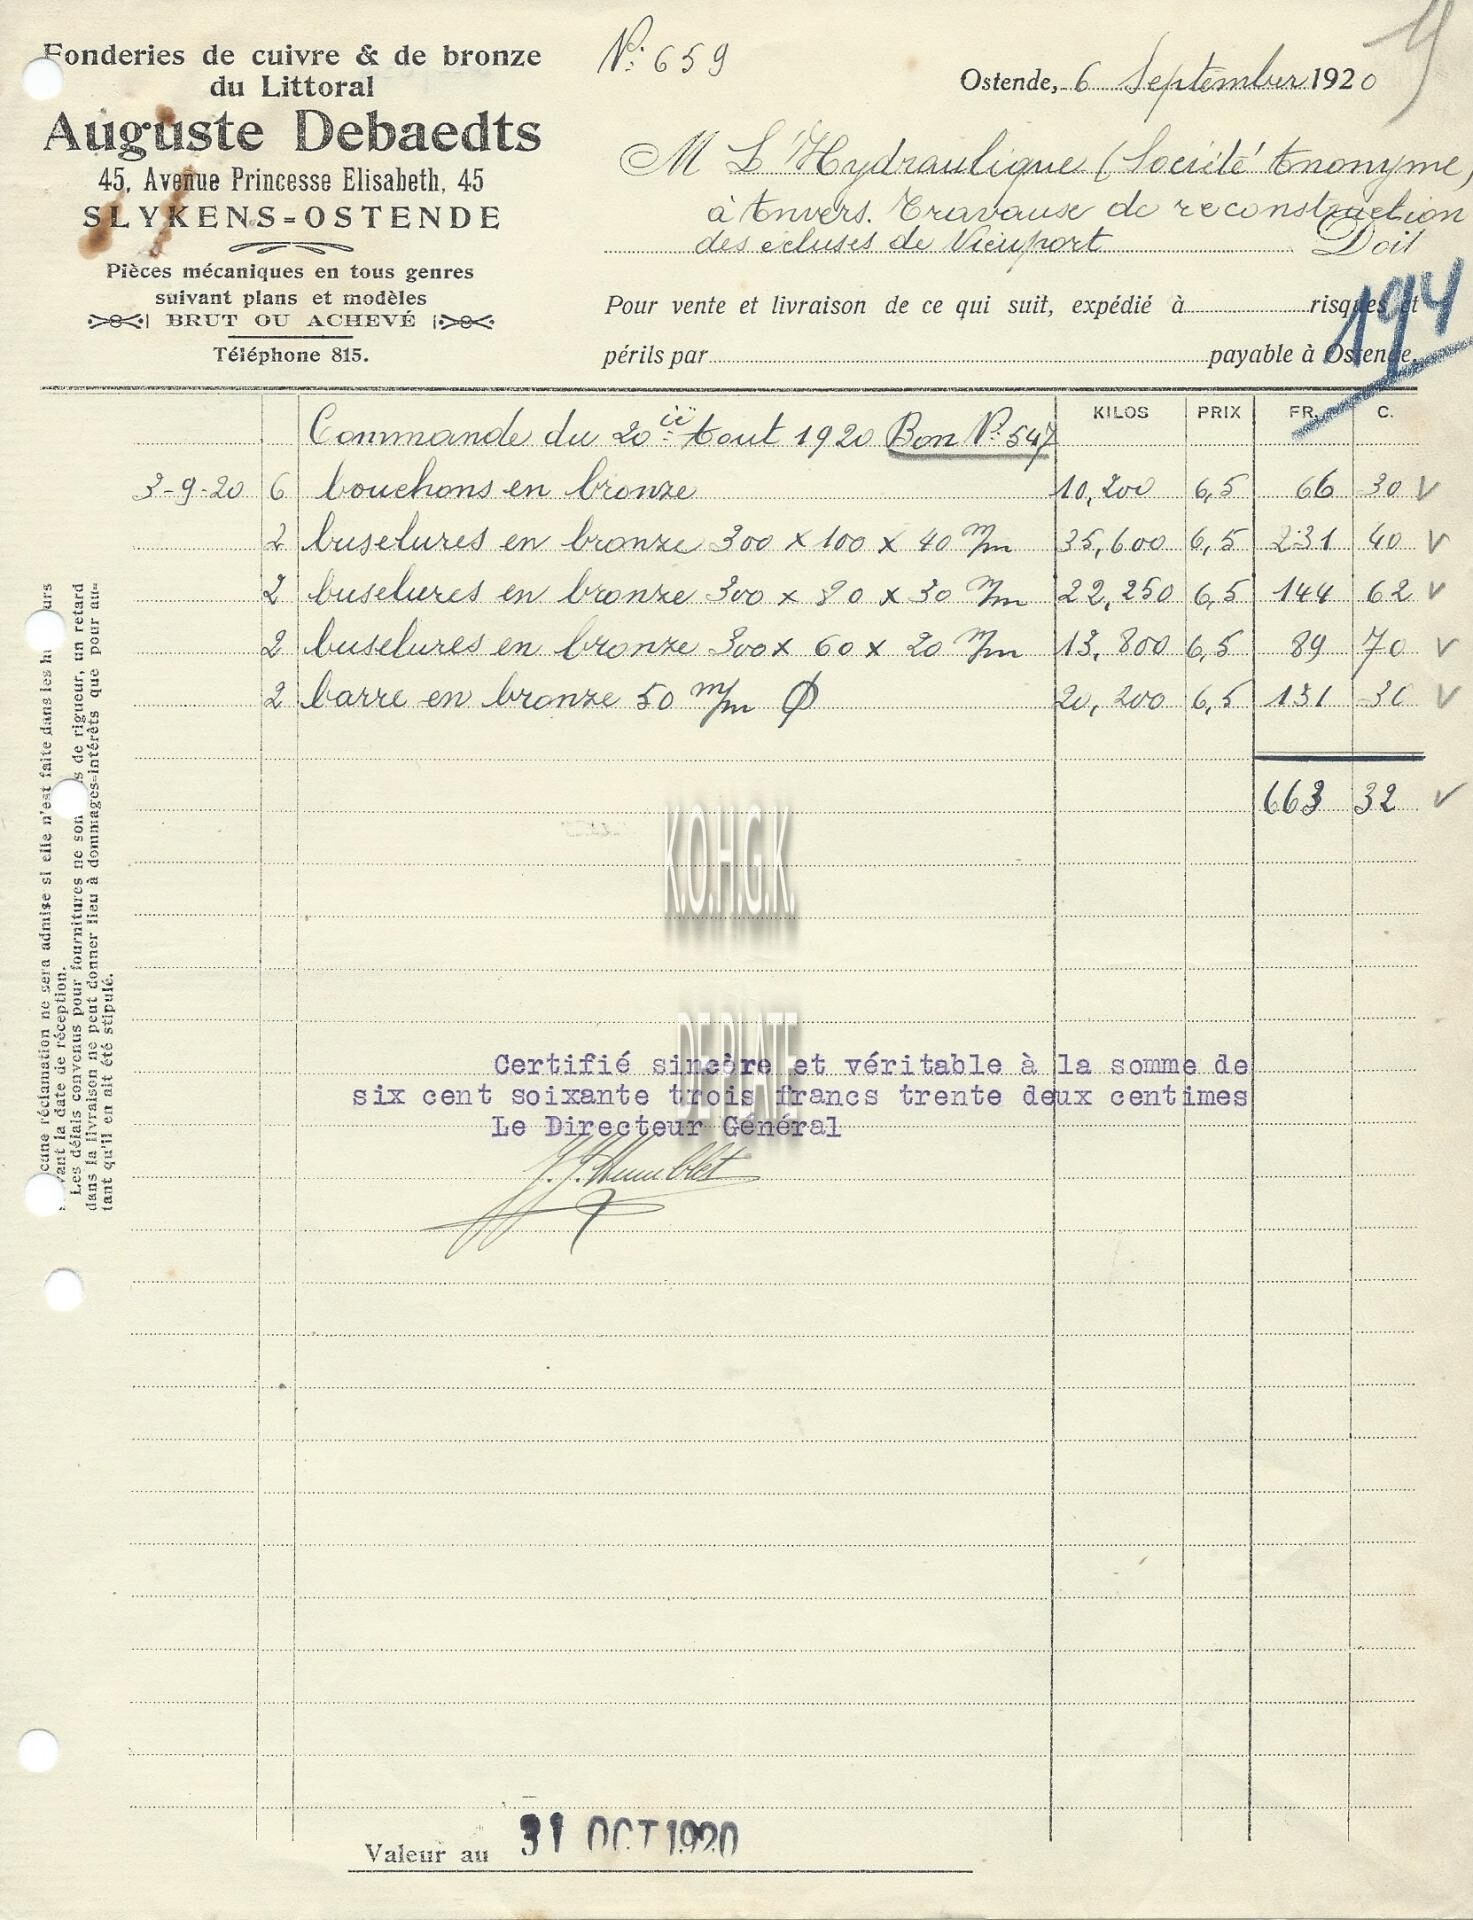 Fonderies de cuivre & de bronze
du Littoral
Auguste Debaedts
45, Avenue Princesse Elisabeth, 45
SLYKENS-OSTENDE
Pièces mécaniques en tous genres
suivant plans et modèles
BRUT OU ACHEVÉ
Téléphone 815.
No: 659
Ostende, 6 September 1920
M L'Hydraulique (Société Anonyme)
à Anvers. Travause de reconstruction
des écluses de Nieuport Doit
Pour vente et livraison de ce qui suit, expédié à risques et
périls par payable à Ostende.
194
KILOS PRIX FR. C.
Commande du 20 Aout 1920 Bon No. 547
3-9-20 6 bouchons en bronze 10,200 6,5 66 30
2 buselures en bronze 300 x 100 x 40 m/m 35,600 6,5 231 40
2 buselures en bronze 300 x 80 x 30 m/m 22,250 6,5 144 62
2 buselures en bronze 300 x 60 x 20 m/m 13,800 6,5 89 70
2 barre en bronze 50 m/m Ø 20,200 6,5 131 30
663 32
K.O.H.G.K.
DE PLATE
Certifié sincère et véritable à la somme de
six cent soixante trois francs trente deux centimes
Le Directeur Général
J. J. Humblet
cune réclamation ne sera admise si elle n'est faite dans les urs
vant la date de réception.
Les délais convenus pour fournitures ne son s de rigueur, un retard
dans la livraison ne peut donner lieu à dommages-intérêts que pour au-
tant qu'il en ait été stipulé.
Valeur au 31 OCT 1920